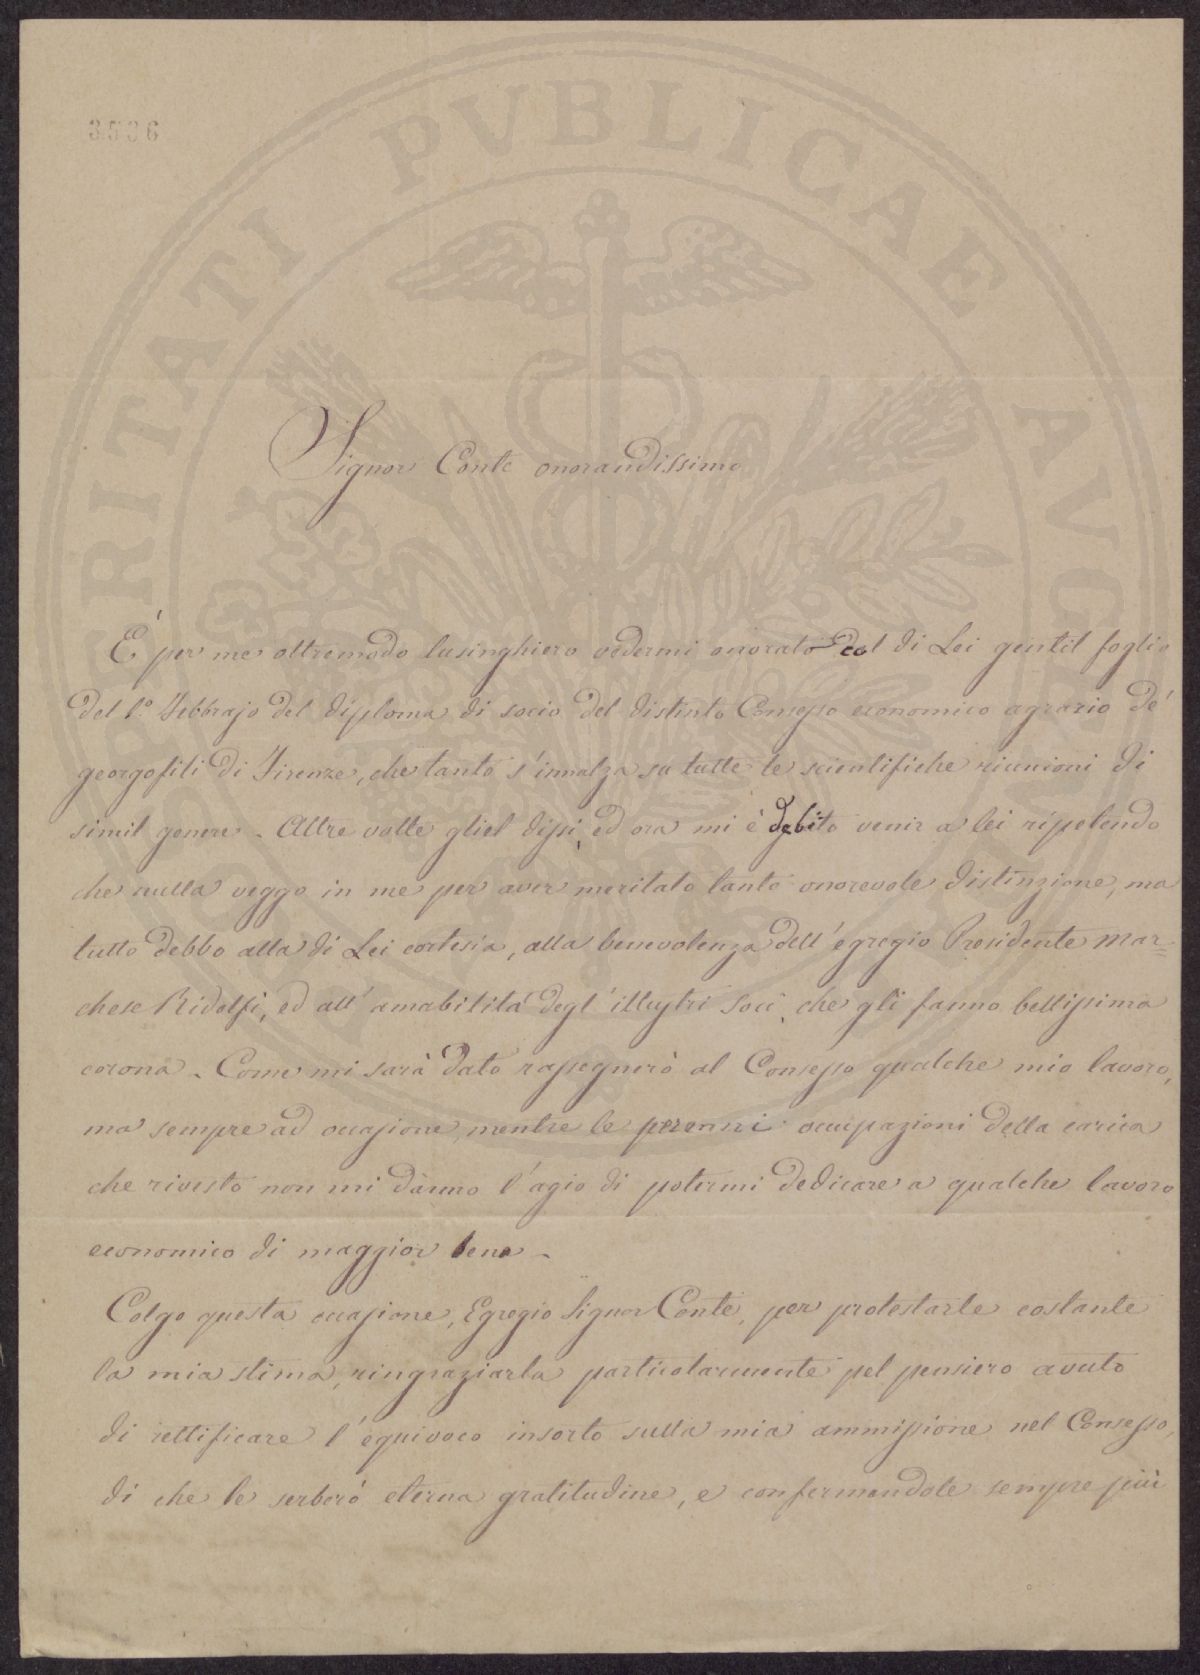 3536
PROSPERITATI PVBLICAE AVGENDAE
Signor Conte onorandissimo
È per me oltremodo lusinghiero vedermi onorato col di Lei gentil foglio
del 1.º Febbrajo del diploma di socio del distinto Consesso economico agrario de'
georgofili di Firenze, che tanto s'innalza su tutte le scientifiche riunioni di
simil genere. Altre volte gliel dissi, ed ora mi è debito venir a lei ripetendo
che nulla veggo in me per aver meritato tanto onorevole distinzione, ma
tutto debbo alla di Lei cortesia, alla benevolenza dell'egregio Presidente Mar=
chese Ridolfi, ed all'amabilità degl'illustri soci, che gli fanno bellissima
corona. Come mi sarà dato rassegnerò al Consesso qualche mio lavoro,
ma sempre ad occasione, mentre le perenni occupazioni della carica
che rivesto non mi danno l'agio di potermi dedicare a qualche lavoro
economico di maggior lena.
Colgo questa occasione, Egregio Signor Conte, per protestarle costante
la mia stima, ringraziarla particolarmente pel pensiero avuto
di rettificare l'equivoco insorto sulla mia ammissione nel Consesso,
di che le serberò eterna gratitudine, e confermandole sempre più